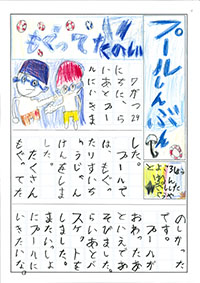 プールしんぶん
もぐってたのしい
７がつ29
にちに、ら
いあとプー
ルにいきま
した。
プールで
は、もぐっ
たりすいち
ゅうじゃん
けんをしま
した。
たくさん
もぐってた
のしかった
です。
プールが
おわったあ
らいあとバ
スケットを
しました。
またいっしょ
にプールに
いきたいな。